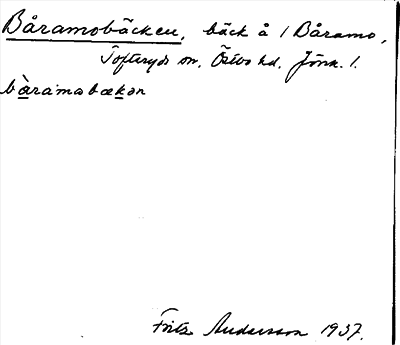 Båramobäcken, bäck å 1 Båramo,
Tofteryds sn. Östbo hd. Jönk. l.
bàramobækən
Fritz Andersson 1937.